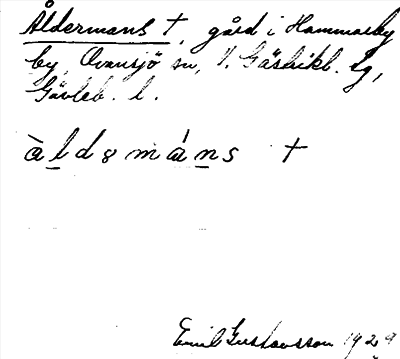 Åldermans †, gård i Hammarby
by, Ovansjö sn, V. Gästrikl. tg,
Gävleb. l.
àldɘmáns †
Emil Gustavsson 1929